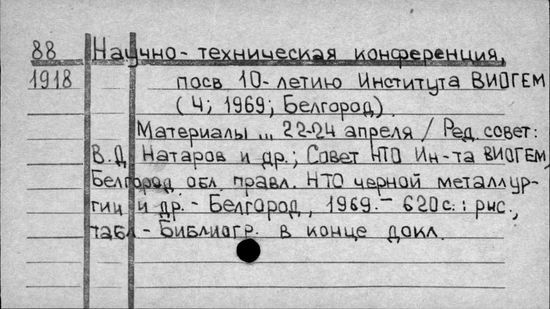 88 Научно-техническая конференция,
1918 посв 10-летию Института ВИОГЕМ
(4; 1969; Белгород).
Материалы ... 22-24 апреля / Ред. совет:
В.Д. Натаров и др.; Совет НТО Ин-та ВИОГЕМ,
Белгород. обл. правл. НТО черной металлур-
гии и др. - Белгород, 1969. - 620 с.: рис.,
табл. - Библиогр. в конце докл.